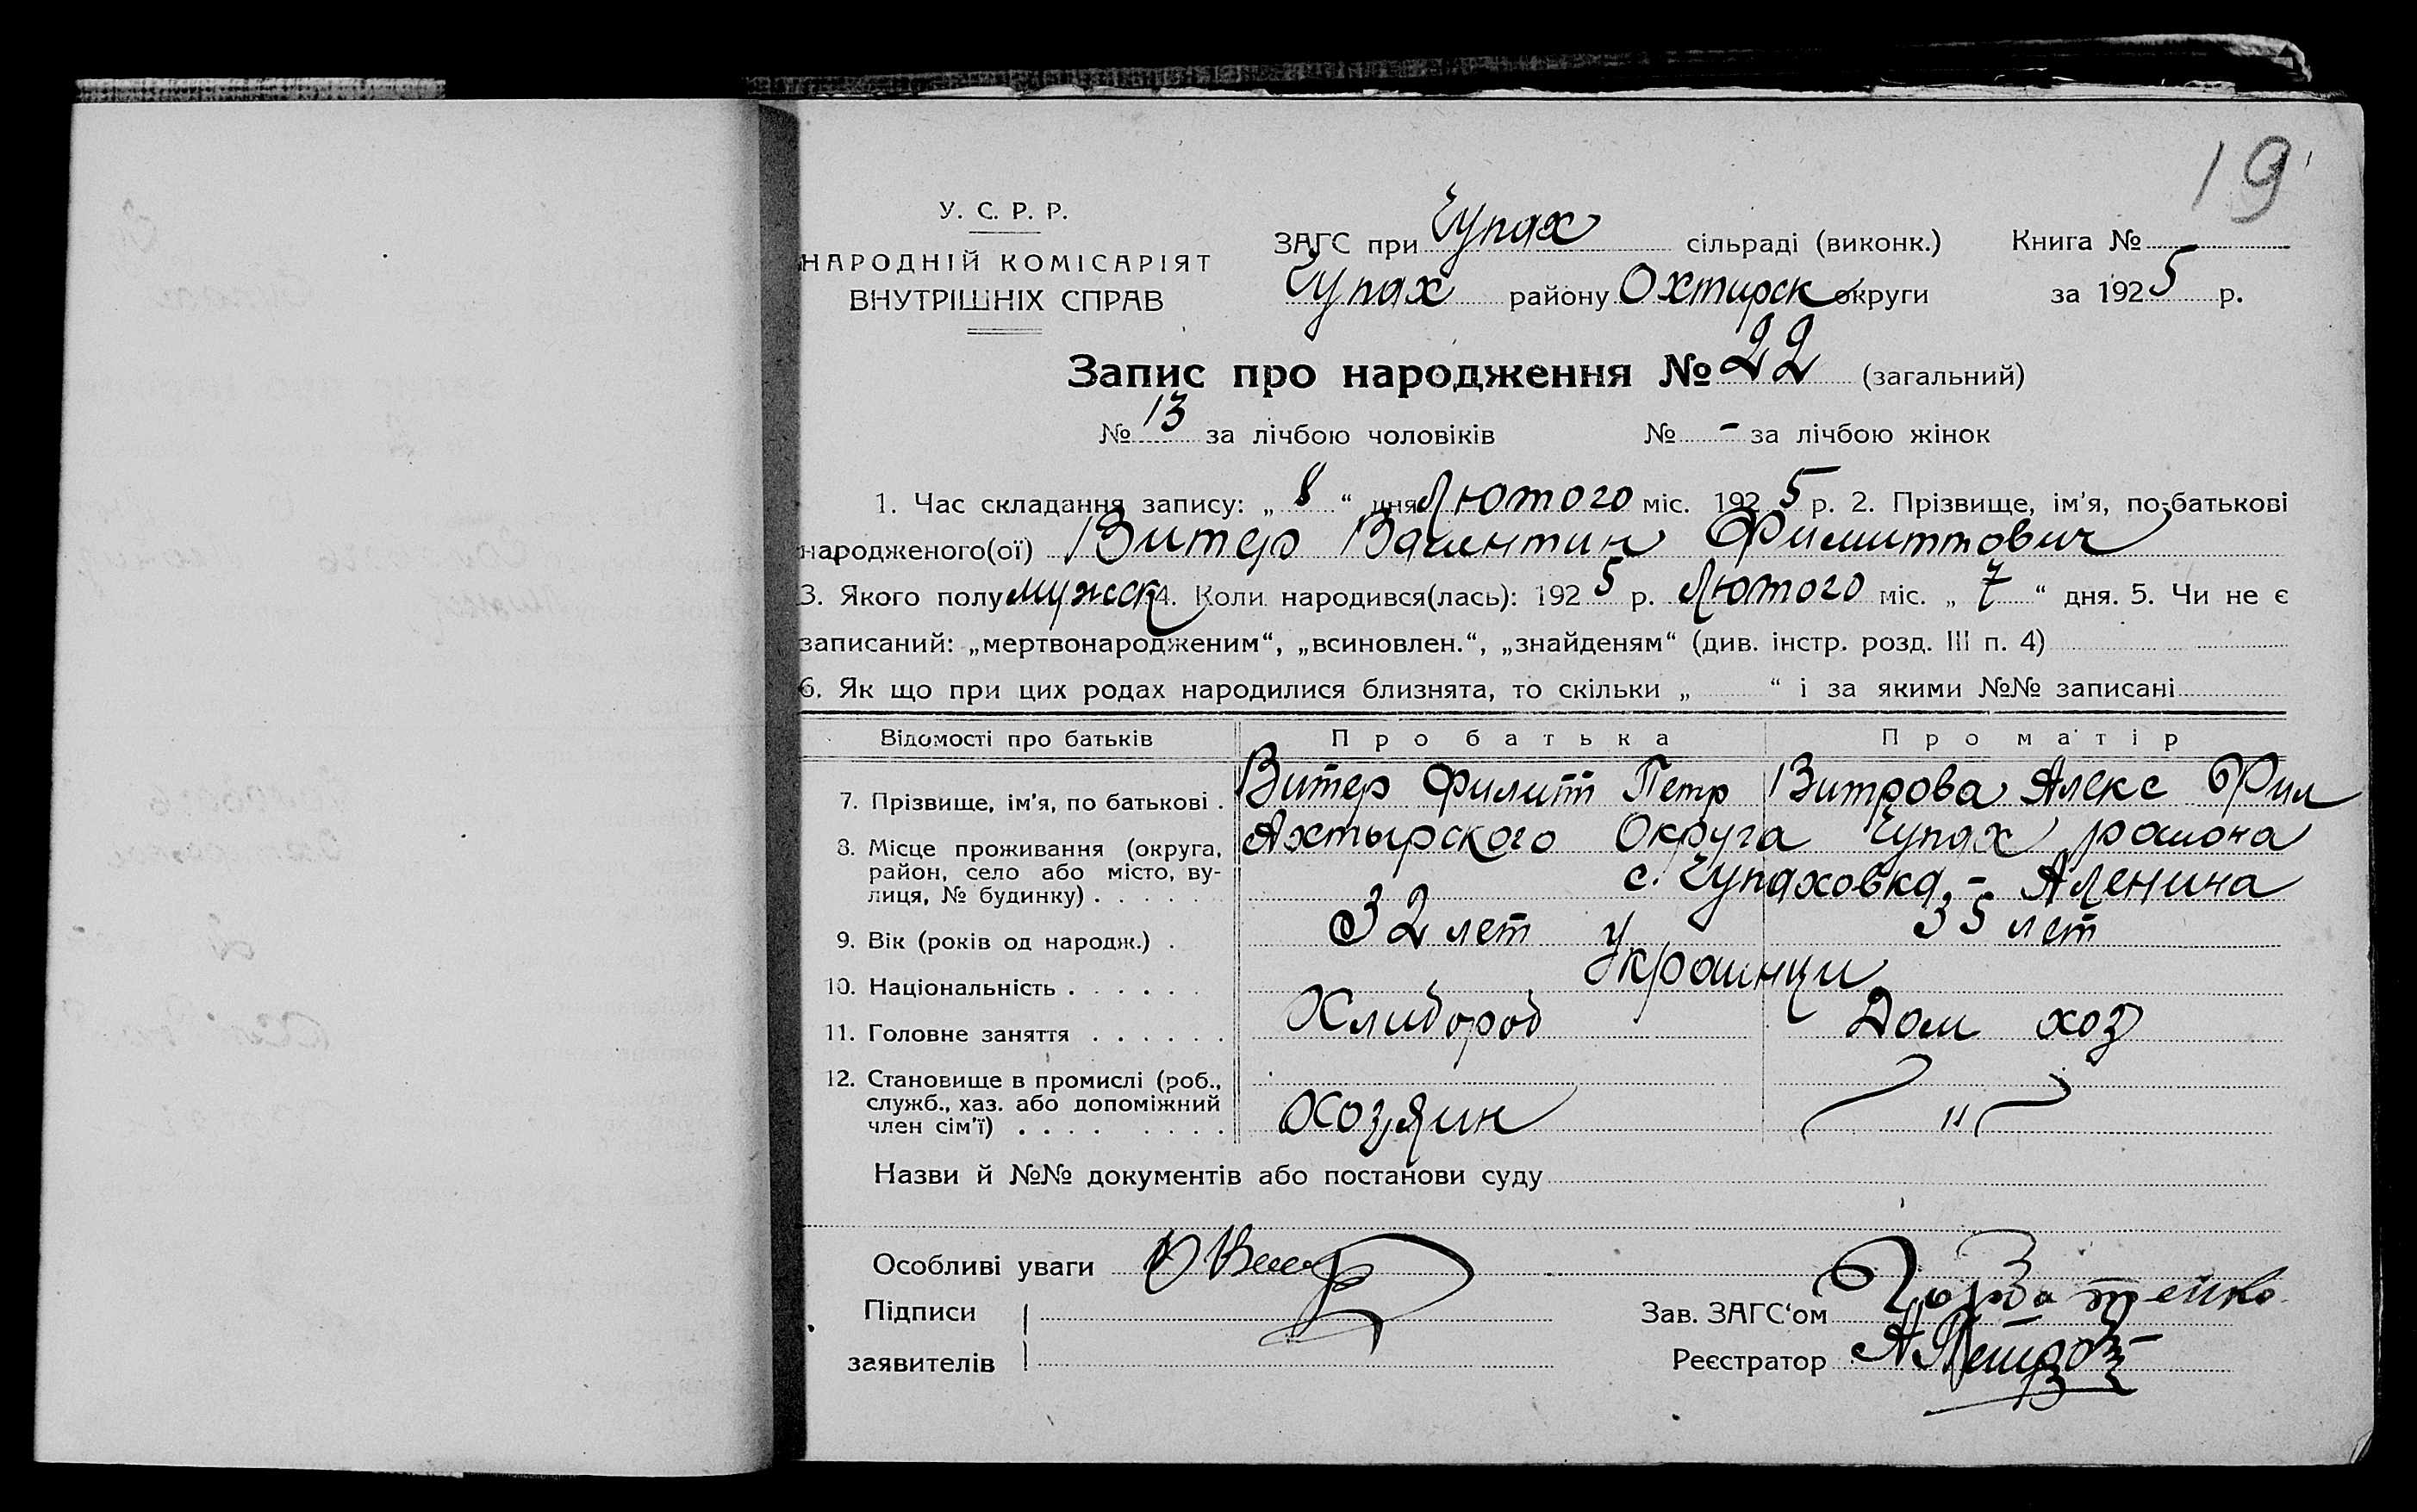 19
У. С. Р. Р.
НАРОДНІЙ КОМІСАРІЯТ
ВНУТРІШНІХ СПРАВ
ЗАГС при Чупах сільраді (виконк.) Книга №
Чупах району Охтирск округи за 1925 р.
Запис про народження № 22 (загальний)
№ 13 за лічбою чоловіків № - за лічбою жінок
1. Час складання запису: „ 8 “ дня Лютого міс. 1925 р. 2. Прізвище, ім'я, по-батькові
народженого(ої) Витер Валентин Филиппович
3. Якого полу мужск 4. Коли народився(лась): 1925 р. Лютого міс. „ 7 “ дня. 5. Чи не є
записаний: „мертвонародженим“, „всиновлен.“, „знайденям“ (див. інстр. розд. III п. 4)
6. Як що при цих родах народилися близнята, то скільки „ “ і за якими №№ записані
Відомості про батьків Про батька Про матір
7. Прізвище, ім'я, по батькові . Витер Филипп Петр Витрова Алекс Фил
8. Місце проживання (округа, район, село або місто, ву-лиця, № будинку) . . . . . . Ахтырского Округа Чупах района
с. Чупаховка, - Аленина
9. Вік (років од народж.) . 32 лет 35 лет
10. Національність . . . . . . Украинци
11. Головне заняття . . . . . . Хлибороб Дом хоз
12. Становище в промислі (роб., служб., хаз. або допоміжний член сім'ї) . . . . . . . . Хозяин — " —
Назви й №№ документів або постанови суду
Особливі уваги
Підписи
Зав. ЗАГС'ом
заявителів
Реєстратор